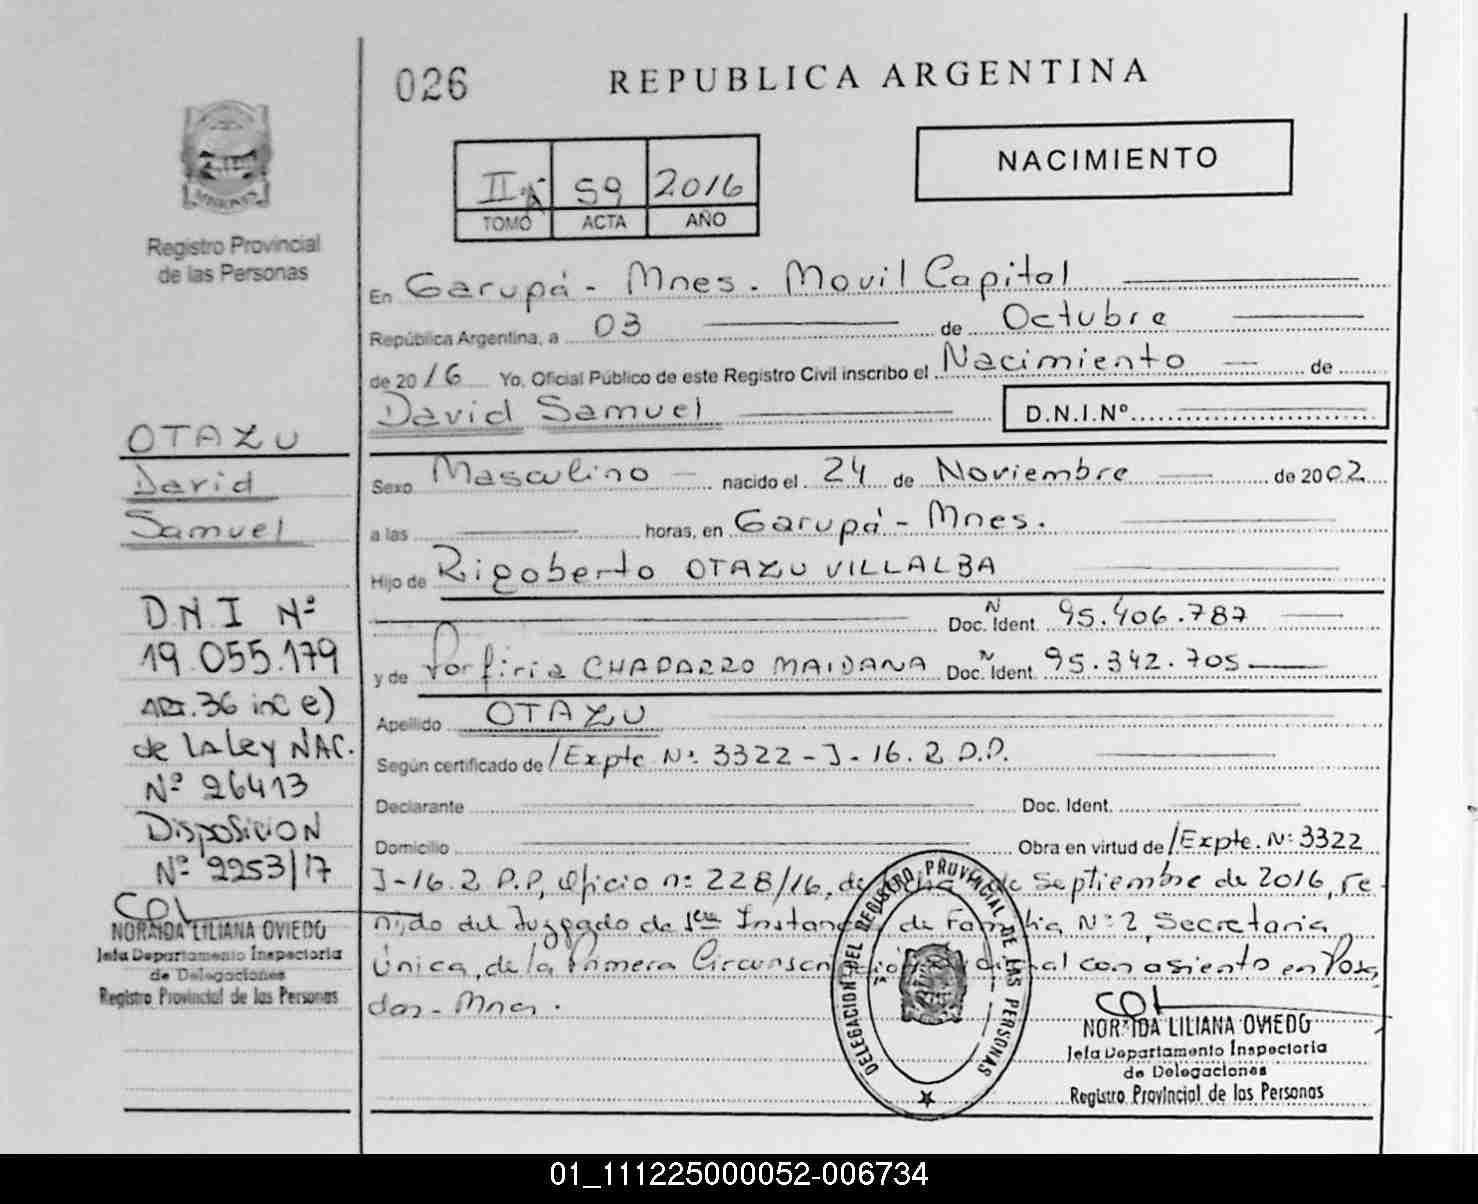 026
REPUBLICA ARGENTINA
NACIMIENTO
II 59 2016
TOMO ACTA AÑO
MISIONES
Registro Provincial
de las Personas
En Garupá - Mnes. Movil Capital
República Argentina, a 03 de Octubre
de 2016 Yo, Oficial Público de este Registro Civil inscribo el Nacimiento de
David Samuel D.N.I.Nº
Sexo Masculino nacido el 24 de Noviembre de 2002
a las horas, en Garupá - Mnes.
Hijo de Rigoberto OTAZU VILLALBA
Doc. Ident. Nº 95.406.787
y de Porfiria CHAPARRO MAIDANA Doc. Ident. Nº 95.342.705
Apellido OTAZU
Según certificado de /Expte Nº 3322-J-16. 2 P.P.
Declarante Doc. Ident.
Domicilio Obra en virtud de /Expte. Nº 3322
J-16.2 P.P, oficio nº 228/16, de de Septiembre de 2016, re-
mido del Juzgado de 1era Instancia de Familia Nº 2, Secretaria
Única, de la Primera Circunscripción Judicial con asiento en Posa
das - Mnes.
OTAZU
David
Samuel
D.N.I Nº
19.055.179
Art. 36 inc e)
de la Ley NAC.
Nº 26413
Disposicion
Nº 2253/17
NORMIDA LILIANA OVIEDO
Jefa Departamento Inspectoria
de Delegaciones
Registro Provincial de las Personas
DELEGACION DEL REGISTRO PROVINCIAL DE LAS PERSONAS
NORMIDA LILIANA OVIEDO
Jefa Departamento Inspectoria
de Delegaciones
Registro Provincial de las Personas
01_111225000052-006734